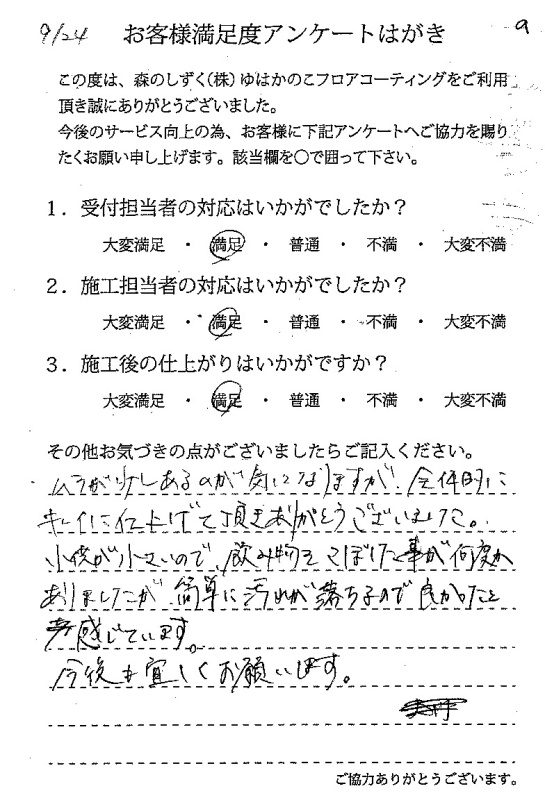 9/24 お客様満足度アンケートはがき 9
この度は、森のしずく(株)ゆはかのこフロアコーティングをご利用
頂き誠にありがとうございました。
今後のサービス向上の為、お客様に下記アンケートへご協力を賜り
たくお願い申し上げます。該当欄を〇で囲って下さい。
1．受付担当者の対応はいかがでしたか？
大変満足 ・ 満足 ・ 普通 ・ 不満 ・ 大変不満
2．施工担当者の対応はいかがでしたか？
大変満足 ・ 満足 ・ 普通 ・ 不満 ・ 大変不満
3．施工後の仕上がりはいかがですか？
大変満足 ・ 満足 ・ 普通 ・ 不満 ・ 大変不満
その他お気づきの点がございましたらご記入ください。
ムラが少しあるのが気になりますが、全体的に
キレイに仕上げて頂きありがとうございました。
小供が小さいので、飲み物をこぼした事が何度か
ありましたが、簡単に汚れが落ちるので良かったと
感じています。
今後も宜しくお願いします。
ご協力ありがとうございます。